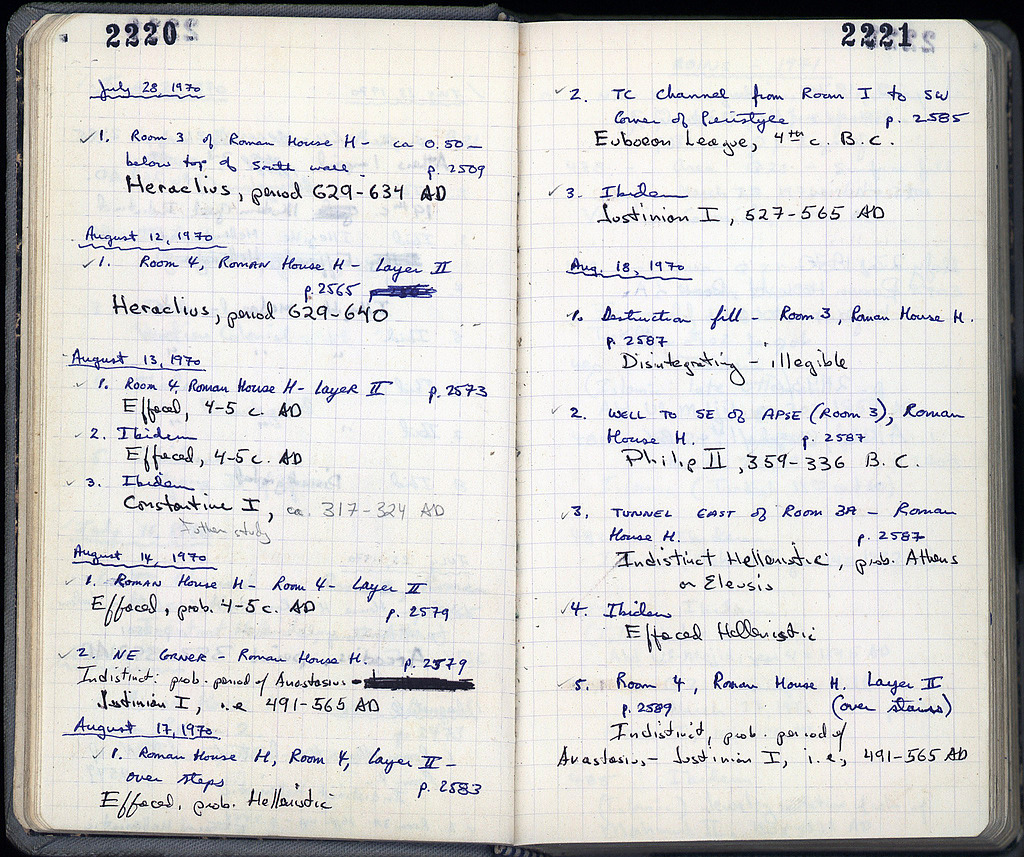 2220
July 28, 1970
1. Room 3 of Roman House H - ca 0.50 -
below top of South wall. p. 2509
Heraclius, period 629-634 AD
August 12, 1970
1. Room 4, Roman House H - Layer II
p. 2565
Heraclius, period 629-640
August 13, 1970
1. Room 4 Roman House H - Layer II p. 2573
Effaced, 4-5 c. AD
2. Ibidem
Effaced, 4-5 c. AD
3. Ibidem
Constantine I, ca. 317-324 AD
Futher study
August 14, 1970
1. Roman House H - Room 4 - Layer II
Effaced, prob. 4-5 c. AD p. 2579
2. NE Corner - Roman House H p. 2579
Indistinct: prob. period of Anastasius -
Justinian I, i.e 491-565 AD
August 17, 1970
1. Roman House H, Room 4, Layer II -
over steps p. 2583
Effaced, prob. Hellenistic
2221
2. TC Channel from Room I to SW
Corner of Peristyle p. 2585
Euboean League, 4th c. B.C.
3. Ibidem
Justinian I, 527-565 AD
Aug. 18, 1970
1. Destruction fill - Room 3, Roman House H.
p. 2587
Disintegrating - illegible
2. Well to SE of Apse (Room 3), Roman
House H. p. 2587
Philip II, 359-336 B.C.
3. Tunnel East of Room 3A - Roman
House H. p. 2587
Indistinct Hellenistic, prob. Athens
or Eleusis
4. Ibidem
Effaced Hellenistic
5. Room 4, Roman House H. Layer II
p. 2589 (over stairs)
Indistinct, prob. period of
Anastasius - Justinian I, i.e, 491-565 AD